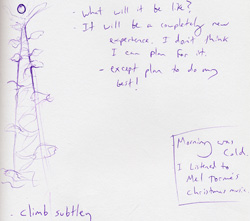 - what will it be like?
- It will be a completely new
experience. I don't think
I can plan for it.
- except plan to do my
best!
Morning was
Cold.
I listened to
Mel Torme's
Christmas music
. climb subtley